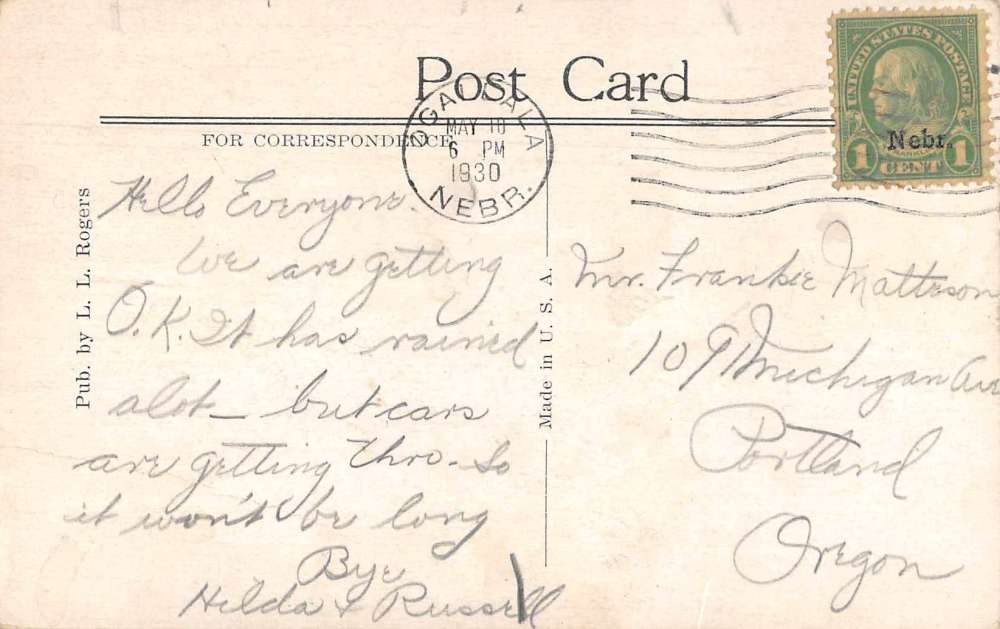 Post Card
FOR CORRESPONDENCE
OGALLALA
MAY 10
6 PM
1930
NEBR.
UNITED STATES POSTAGE
Nebr.
FRANKLIN
1 CENT 1
Pub. by L. L. Rogers
Made in U. S. A.
Hello Everyone.
We are getting
O.K. It has rained
alot – but cars
are getting thro. So
it won't be long
Bye
Hilda & Russell
Mr. Frankie Matteson
109 Michigan Ave
Portland
Oregon